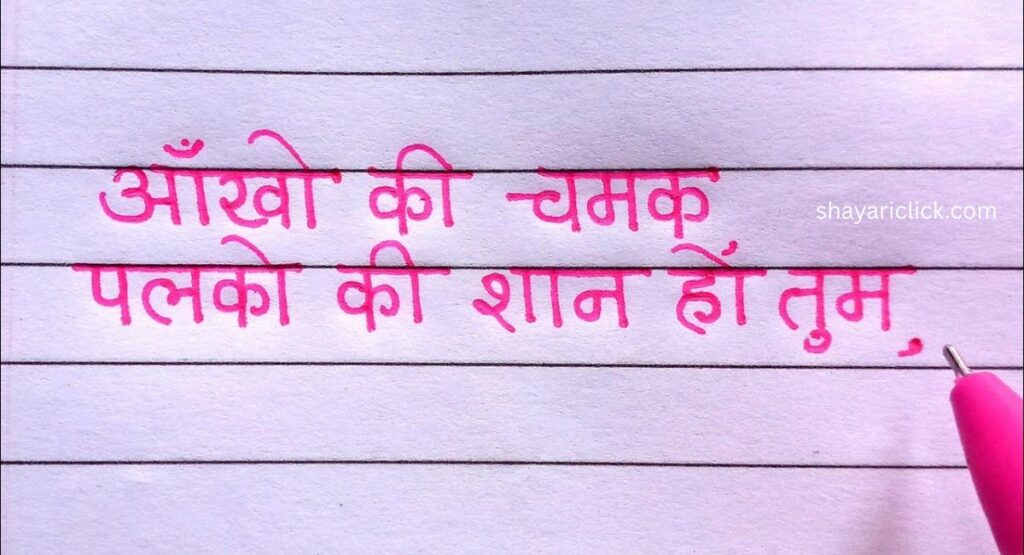 आँखो की चमक
shayariclick.com
पलको की शान हों तुम,